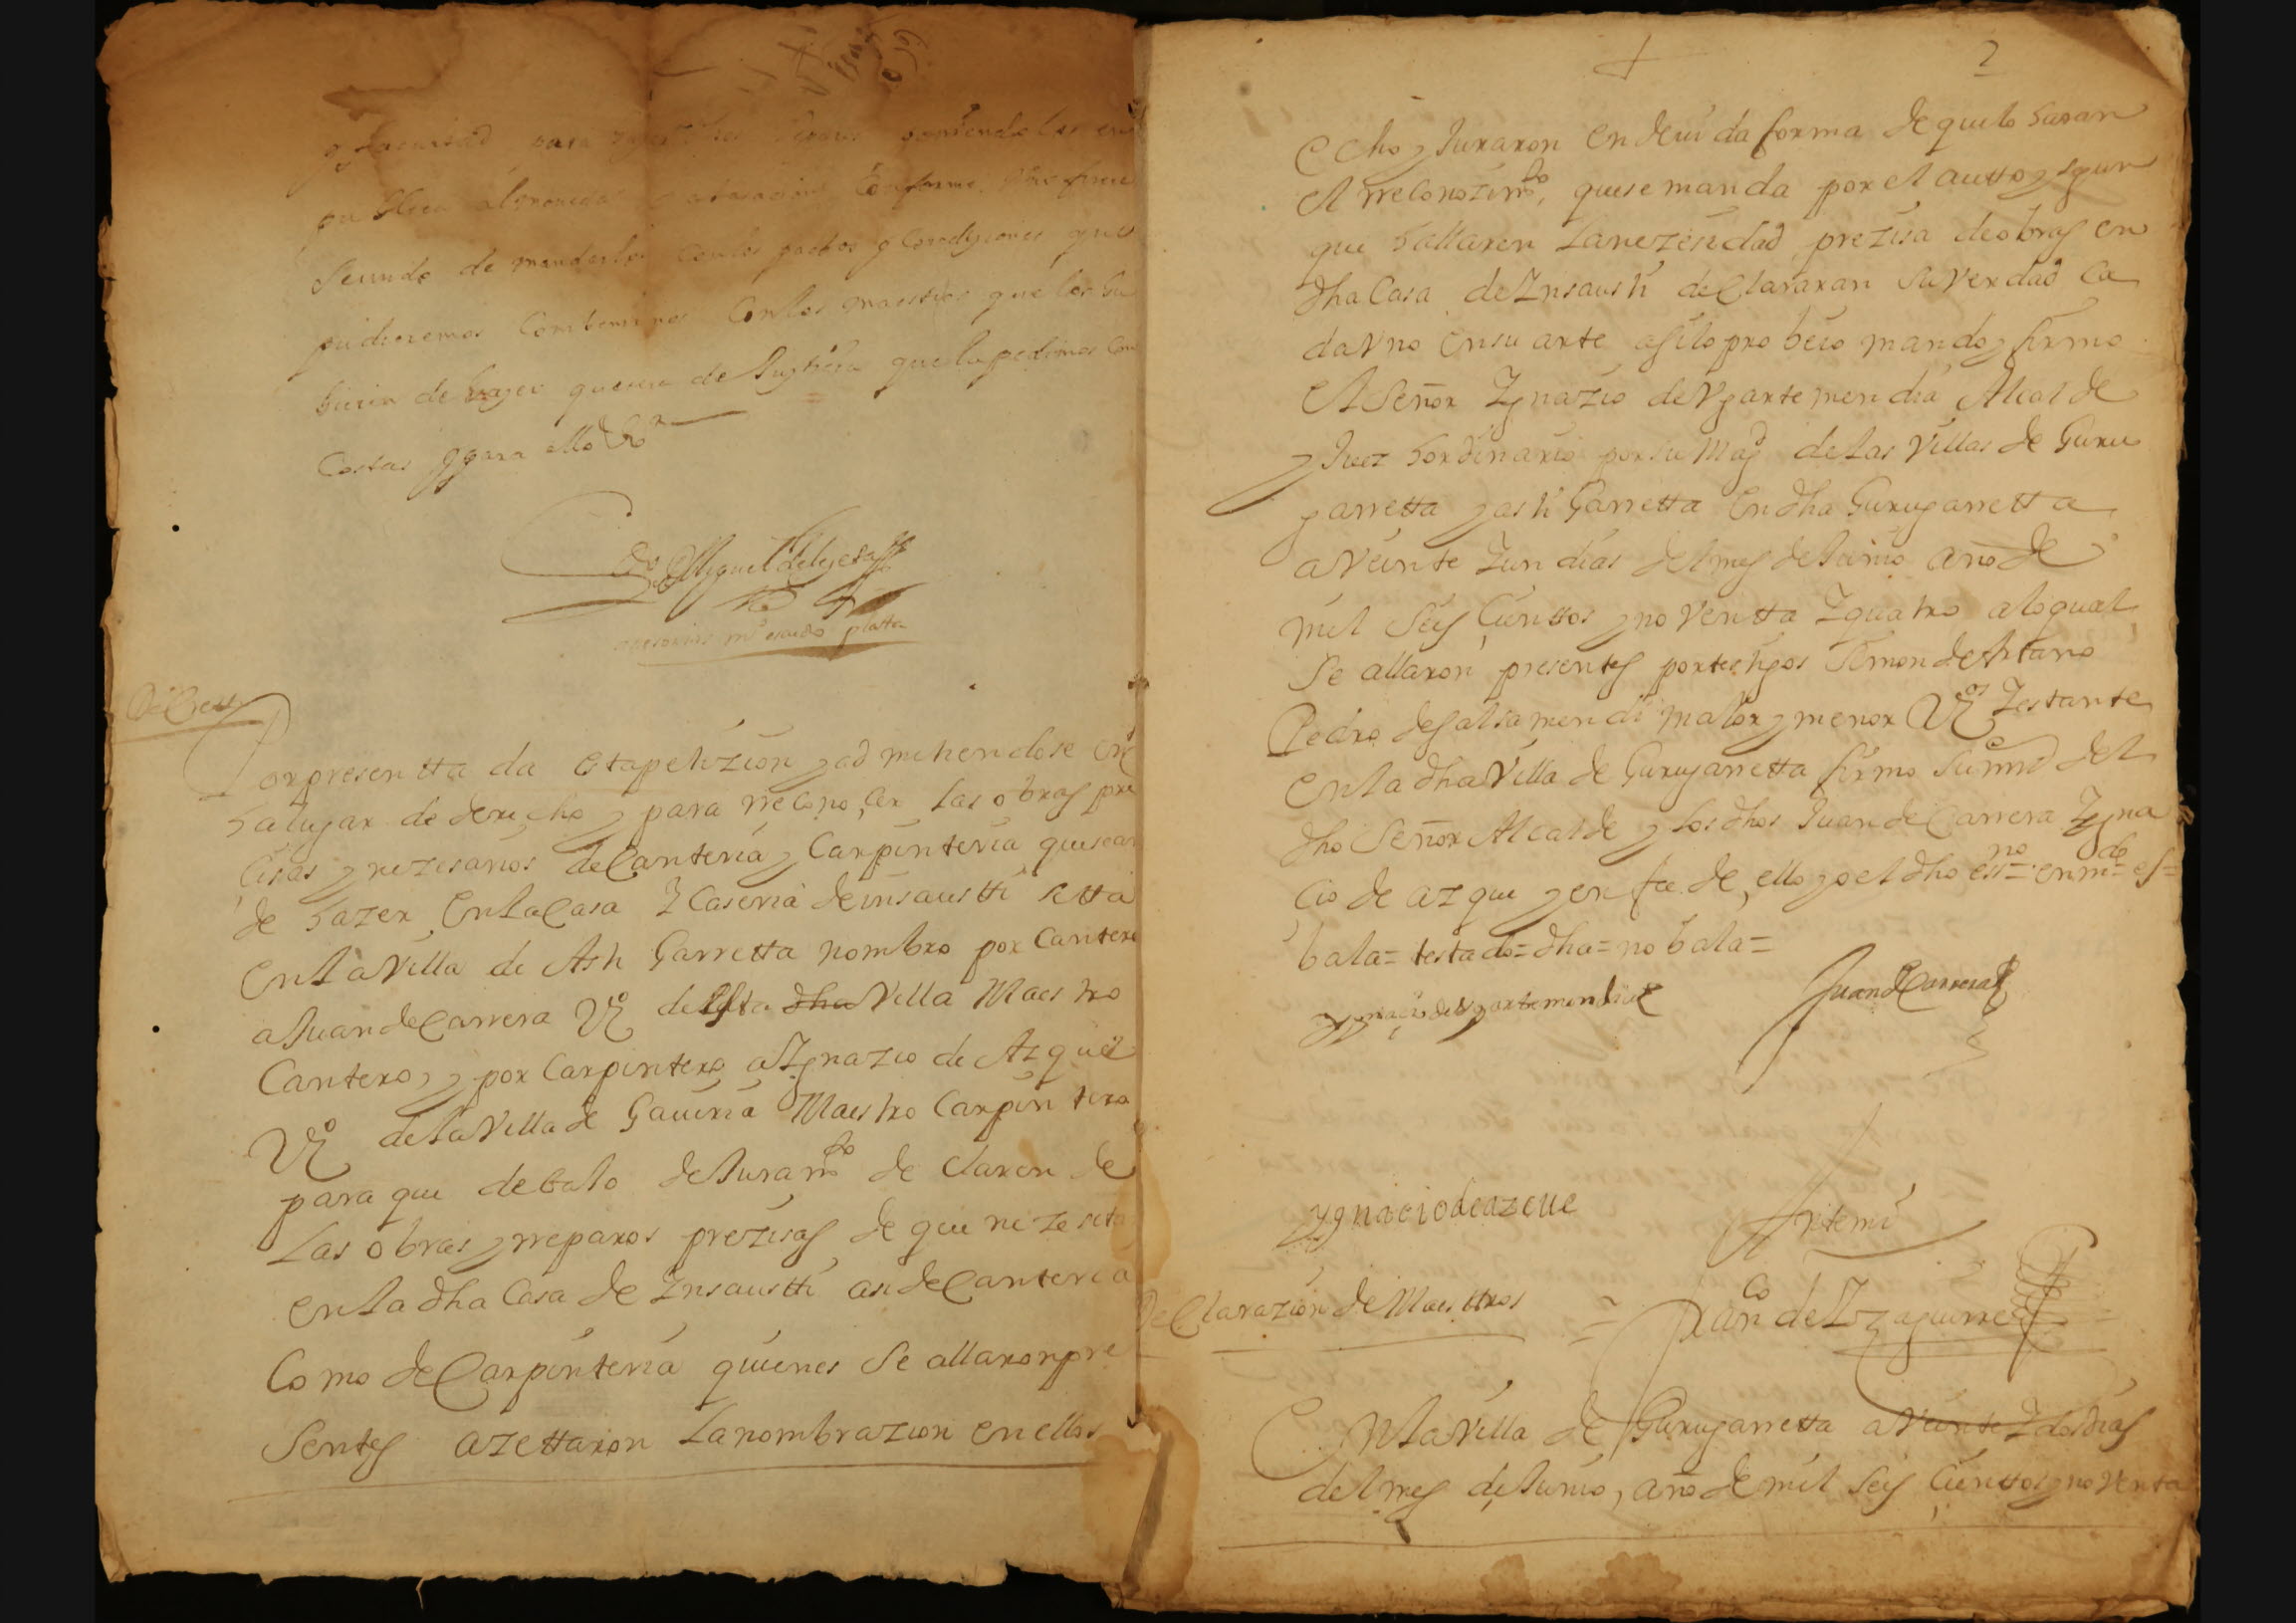 y facultad para poniendolas en
publica almoneda conforme
siendo de mandarlos con los pactos y Condiziones que
pudieremos Combenirnos Con los maestros que los hu
bieren de hazer que sera de Justizia que la pedimos Con
Costas y para ello &ª
Miguel de
plata
Decretto
Por presentta da esta petizion y ad mitiendose en
ha lugar de derecho y para rreconozer las obras pre
cisas y nezesarios de Canteria y Carpinteria que se an
de hazer En la Casa y Caseria de insaustti sitta
En la Villa de Asti Garretta nombro por Cantero
a Juan de Carrera Vº de esta dha Villa Maestro
Cantero, y por Carpintero a Ygnazio de Azque
Vº de la Villa de Gauiria Maestro Carpintero
para que debajo de Juramto de claren de
Las obras y rreparos prezisas de que nezesita
en la dha Casa de Ynsaustti asi de Canteria
Como de Carpinteria quienes Se allaron pre
Sentes azettaron La nombrazion en ellos
2
Echo y Juraron en deuida forma de que lo haran
el rreconozimto, que se manda por el autto y segun
que hallaren La nezesidad prezisa de obras en
dha Casa de Ynsausti declararan su Verdad Ca
da Vno en su arte asi lo probeio mando y firmo
El Señor Ygnazio de Vgartemendia Alcalde
y Juez hordinario por su Magd de las Villas de Guru
garretta y asti Garretta En dha Gurugarretta
a Veinte y un dias del mes de Junio año de
mil Seis Cienttos y no Ventta y quatro a lo qual
Se allaron presentes por testigos Simon de Aritano
Pedro de galsamendi maior y menor Vos Y estante
en la dha Villa de Gurugarretta firmo Su md del
dho Señor Alcalde y los dhos Juan de Carrera Ygna
cio de azque y en fee de ello yo el dho essno = enmdo = es=
bala= testado= dha= no bala=
Ygnacio de Vgartemendia Juan de Carrera
ygnaciodeazcue Antemi
Franco de Yzaguirre
De Clarazion de Maesttros =
En la Villa de Gurugarretta a Veinte Y dos dias
del mes de Junio, año de mil Seis Cienttos y no Venta